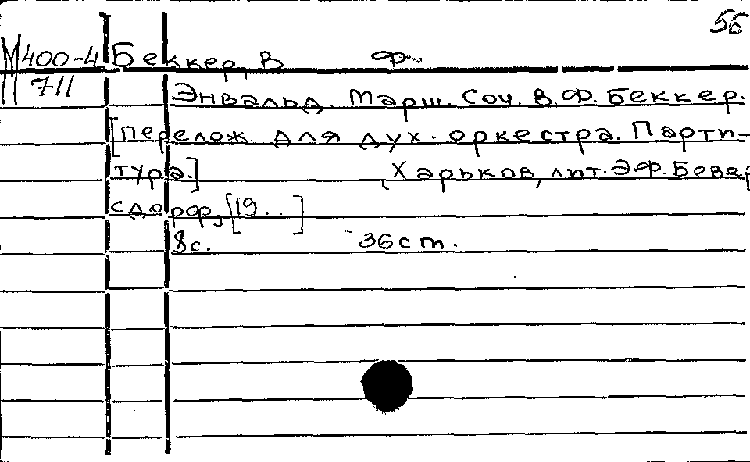 56
М400-4 Беккер, В Ф.
711
Энвальд. Марш. Соч. В.Ф. Беккер.
[Перелож для дух. оркестра. Парти-
тура.] Харьков, лит. Э.Ф. Бовер
сдорф, [19..]
8с. 36 ст.